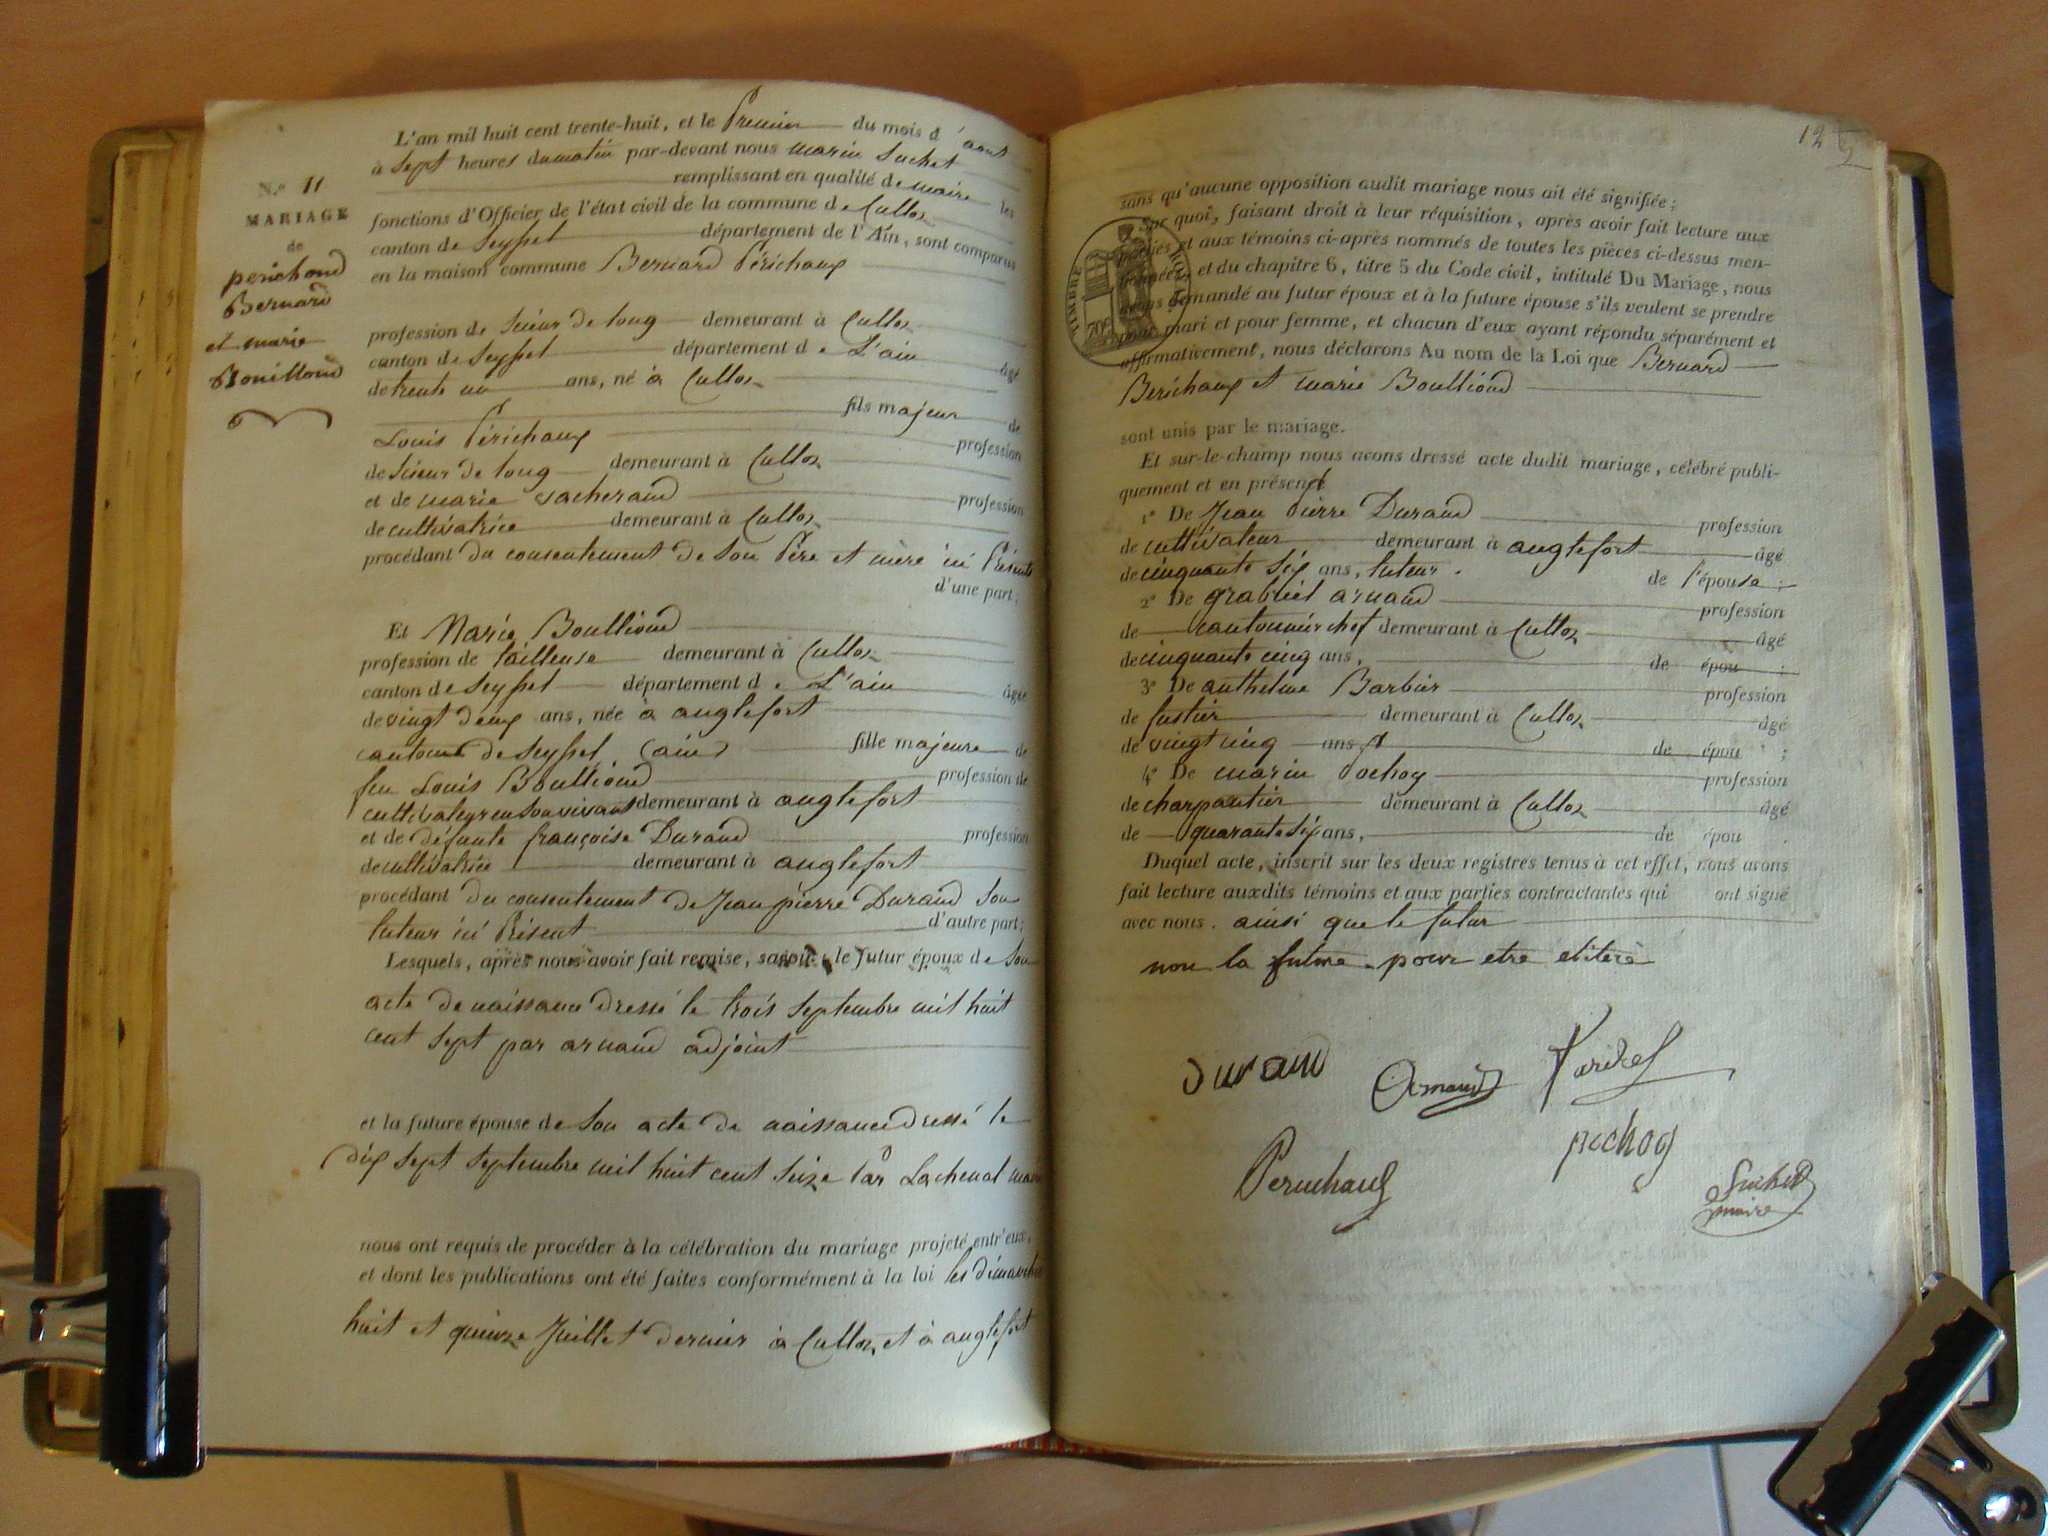 N.º 11
MARIAGE
de
perichond
Bernard
et marie
Bouilloud
L'an mil huit cent trente-huit, et le Premier du mois d'aout
à sept heures du matin par-devant nous marin Suchet
remplissant en qualité de maire les
fonctions d'Officier de l'état civil de la commune de Culloz
canton de Seyssel département de l'Ain, sont comparus
en la maison commune Bernard Périchaux
profession de Scieur de long demeurant à Culloz
canton de Seyssel département de L'ain âgé
de trente un ans, né à Culloz
fils majeur de
Louis Périchaux profession
de Scieur de long demeurant à Culloz
et de marie vacheraud profession
de cultivatrice demeurant à Culloz
procédant du consentement de son Père et mère ici Présents
d'une part;
Et Marie Boullioud
profession de tailleuse demeurant à Culloz
canton de Seyssel département de L'ain âgée
de vingt deux ans, née à anglefort
canton de Seyssel (ain) fille majeure de
feu Louis Boullioud profession de
cultivateur en son vivant demeurant à anglefort
et de défunte françoise Durand profession
de cultivatrice demeurant à anglefort
procédant du consentement de Jean pierre Durand son
tuteur ici Présent d'autre part;
Lesquels, après nous avoir fait remise, savoir: le futur époux de Son
acte de naissance dressé le trois Septembre mil huit
cent sept par arnaud adjoint
et la future épouse de Son acte de naissance dressé le
dix sept septembre mil huit cent seize Par Lachenal maire
nous ont requis de procéder à la célébration du mariage projeté entr'eux,
et dont les publications ont été faites conformément à la loi les dimanches
huit et quinze Juillet dernier à Culloz et à anglefort
12
sans qu'aucune opposition audit mariage nous ait été signifiée;
Sur quoi, faisant droit à leur réquisition, après avoir fait lecture aux
parties et aux témoins ci-après nommés de toutes les pièces ci-dessus men-
tionnées, et du chapitre 6, titre 5 du Code civil, intitulé Du Mariage, nous
avons demandé au futur époux et à la future épouse s'ils veulent se prendre
pour mari et pour femme, et chacun d'eux ayant répondu séparément et
affirmativement, nous déclarons Au nom de la Loi que Bernard
Berichaux et marie Boullioud
TIMBRE ROYAL
70c
sont unis par le mariage.
Et sur-le-champ nous avons dressé acte dudit mariage, célébré publi-
quement et en présence
1º De Jean Pierre Durand profession
de cultivateur demeurant à anglefort âgé
de cinquante six ans, tuteur de l'épouse;
2º De grabriel arnaud profession
de cantonnier chef demeurant à Culloz âgé
de cinquante cinq ans, de épou ;
3º De anthelme Barbier profession
de fustier demeurant à Culloz âgé
de vingt cinq ans, de épou ;
4º De marin pochoy profession
de charpantier demeurant à Culloz âgé
de quarante six ans, de épou .
Duquel acte, inscrit sur les deux registres tenus à cet effet, nous avons
fait lecture auxdits témoins et aux parties contractantes qui ont signé
avec nous. ainsi que le futur
non la future pour etre eliterè
Durand
Arnaud
pochoy
Perichaux
Suchet
maire